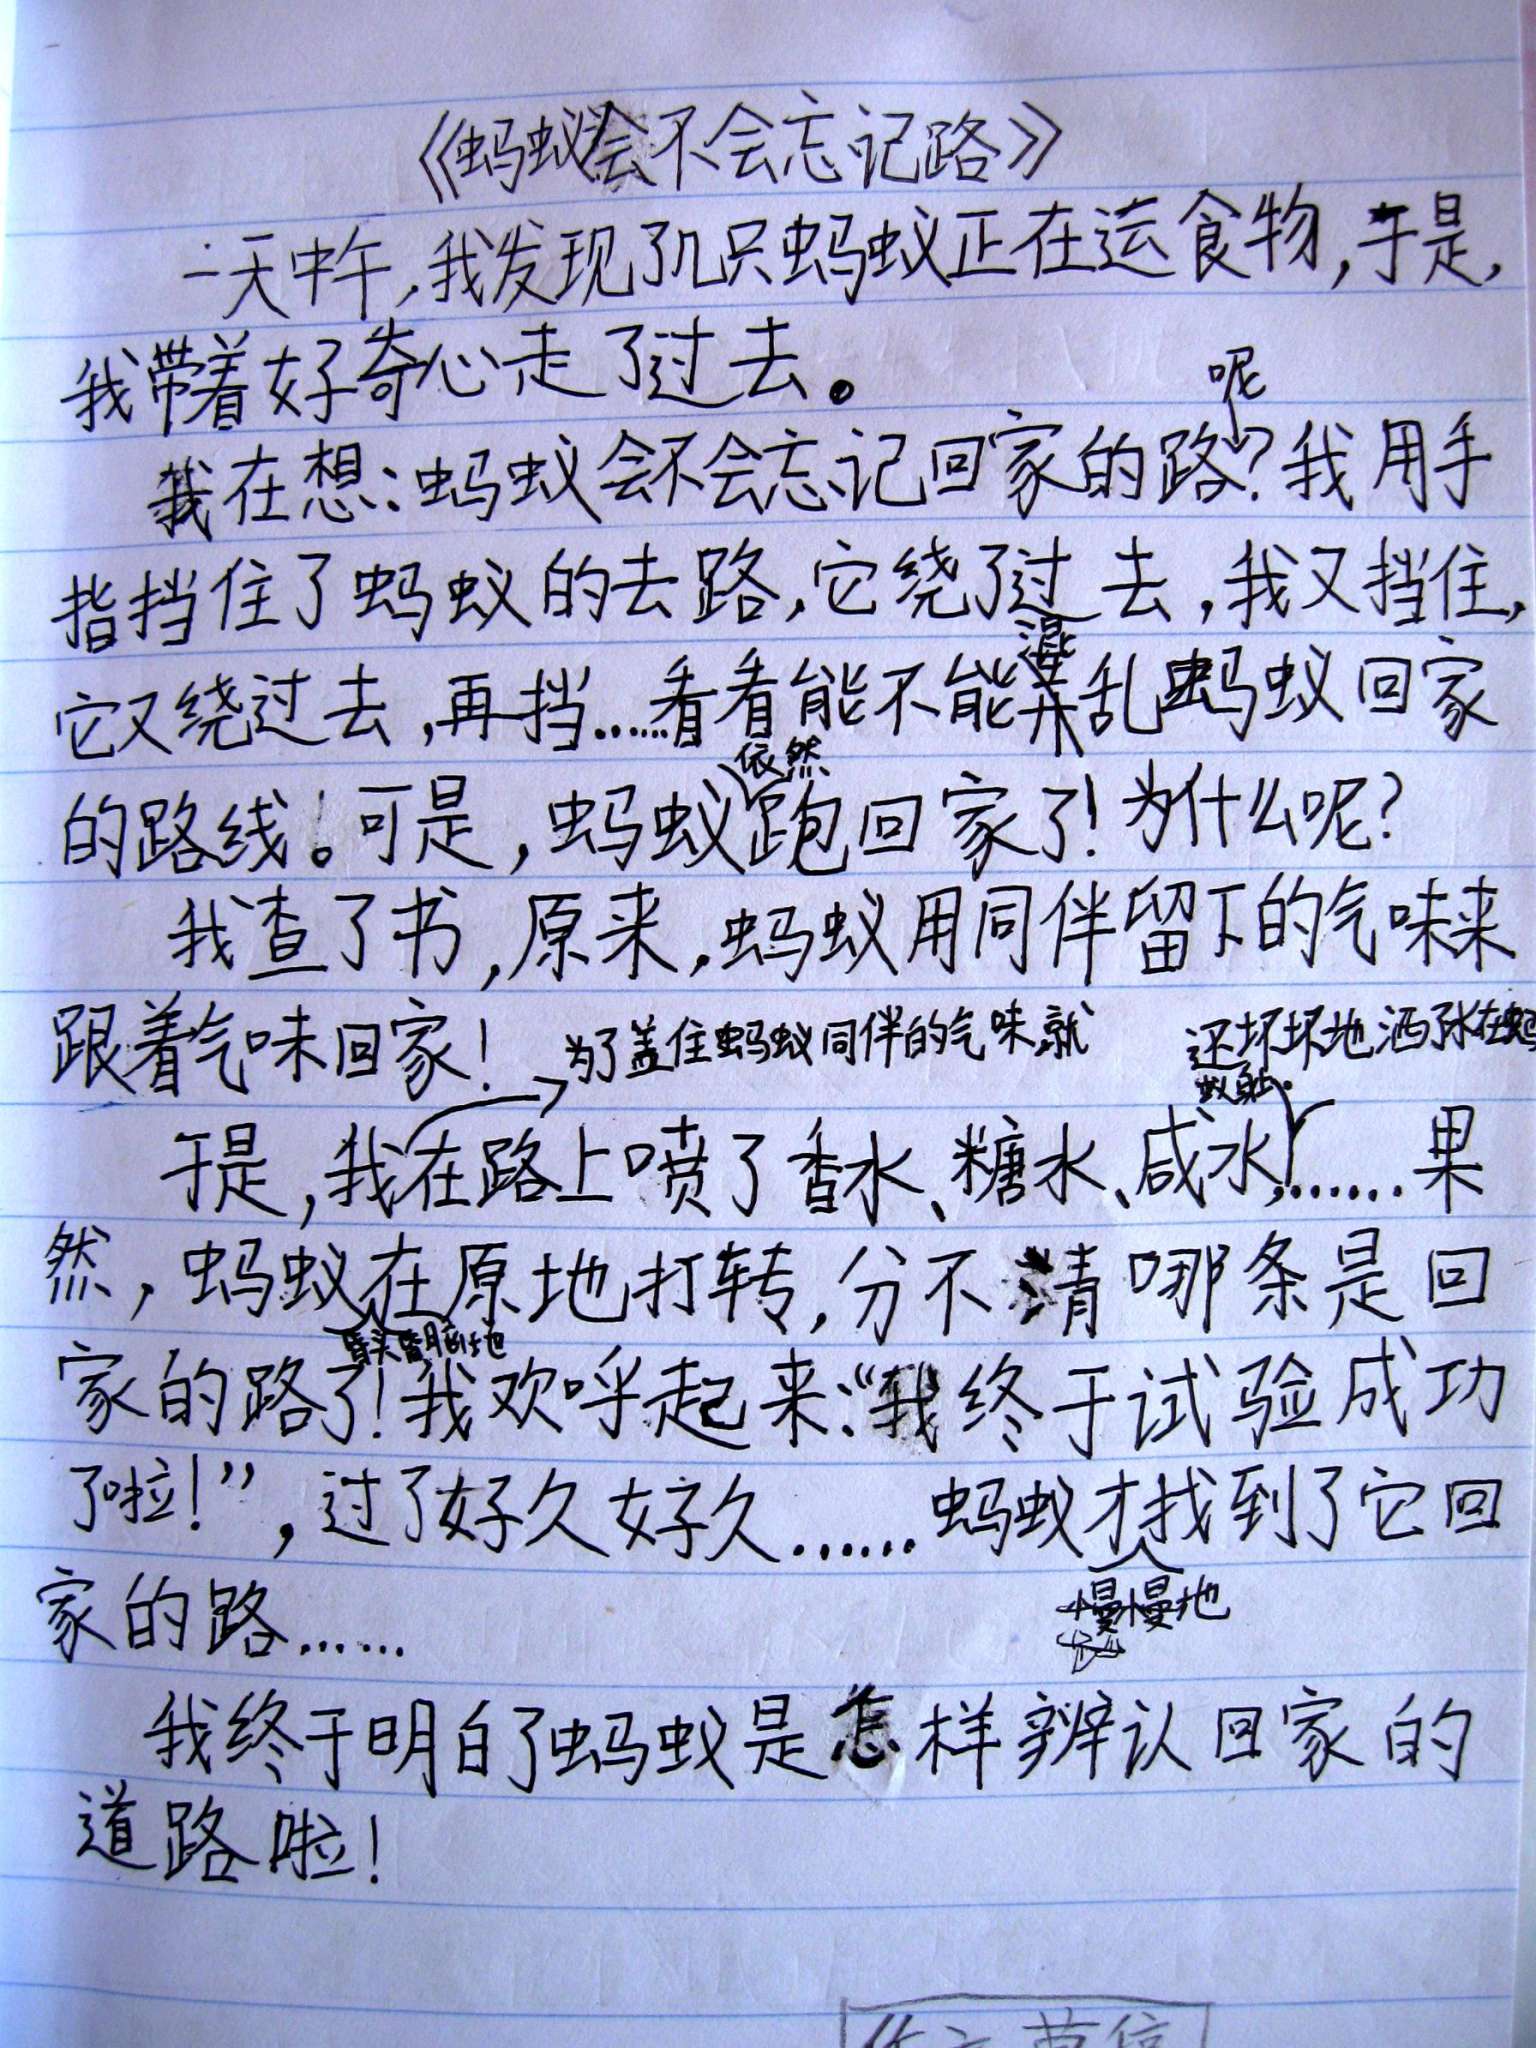 《蚂蚁会不会忘记路》
一天中午，我发现了几只蚂蚁正在运食物，于是，
我带着好奇心走了过去。
呢
我在想：蚂蚁会不会忘记回家的路？我用手
指挡住了蚂蚁的去路，它绕了过去，我又挡住，
混
它又绕过去，再挡……看看能不能弄乱蚂蚁回家
依然
的路线。可是，蚂蚁跑回家了！为什么呢？
我查了书，原来，蚂蚁用同伴留下的气味来
跟着气味回家！
为了盖住蚂蚁同伴的气味就
还坏坏地洒了水在蚂
蚁身上。
于是，我在路上喷了香水、糖水、咸水，……果
然，蚂蚁在原地打转，分不清哪条是回
昏头昏脑地
家的路了！我欢呼起来：“我终于试验成功
了啦！”，过了好久好久……蚂蚁才找到了它回
慢慢地
家的路……
我终于明白了蚂蚁是怎样辨认回家的
道路啦！